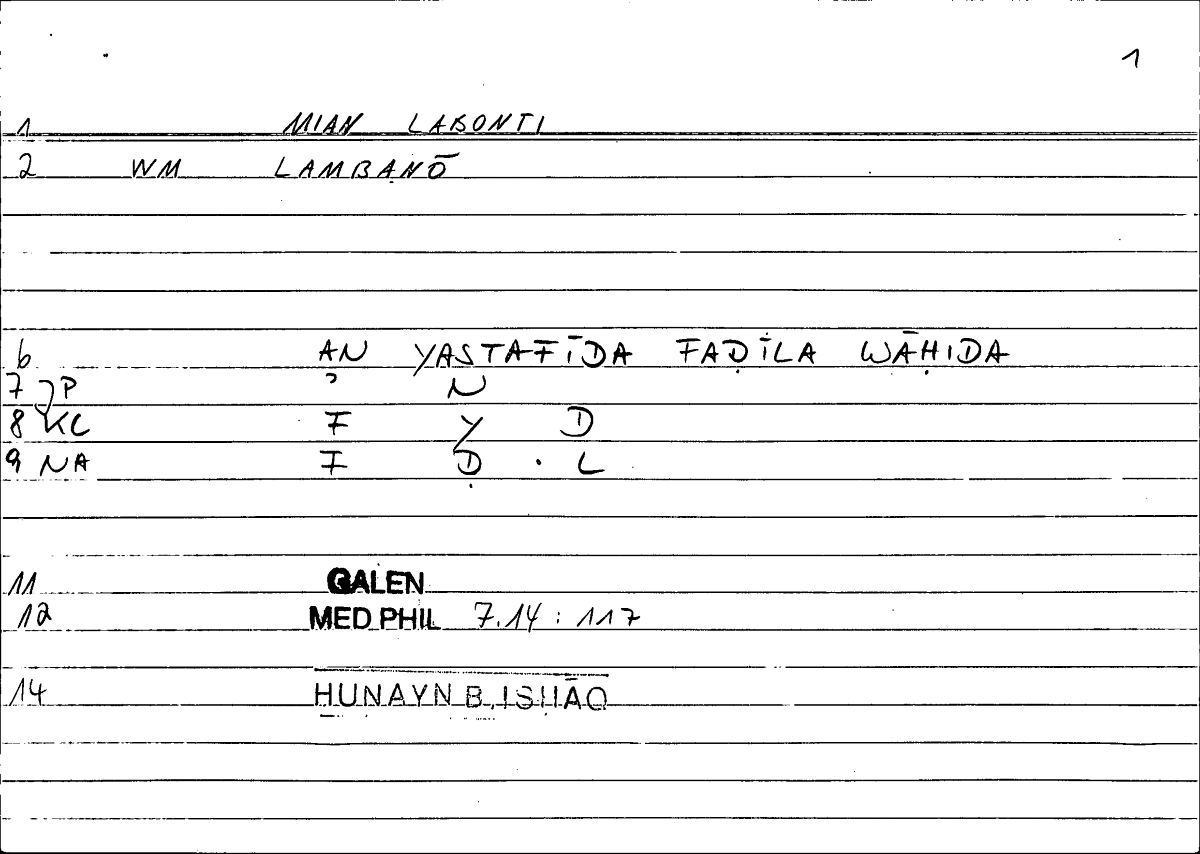 1
1 MIAN LABONTI
2 WM LAMBANŌ
6 AN YASTAFĪDA FAḌĪLA WĀḤIDA
7 JP ʾ N
8 KC F Y D
9 NA F Ḍ . L
11 GALEN
12 MED PHIL 7.14 : 117
14 ḤUNAYN B. ISḤĀQ